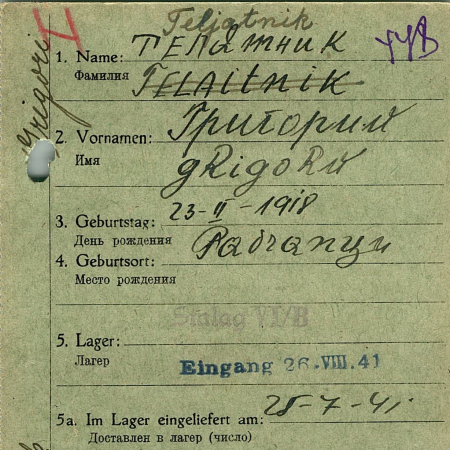 Teljatnik
1. Name: Телятник
Фамилия TELAitnik
Grigori
2. Vornamen: Григорий
Имя gRigoRii
3. Geburtstag: 23-II-1918
День рождения
4. Geburtsort: Рабчанци
Место рождения
Stalag VI/B
5. Lager:
Лагер
Eingang 26.VIII.41
5a. Im Lager eingeliefert am: 28-7-41
Доставлен в лагер (число)